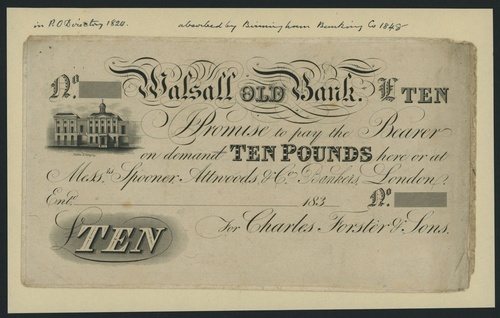 in P.O Directory 1820.
absorbed by Birmingham Banking Co 1848
No. Walsall OLD Bank. £ TEN
I Promise to pay the Bearer
on demand TEN POUNDS here or at
Mess.rs Spooner Attwoods & Co. Bankers London.
Entd. 183 No.
£TEN For Charles Forster & Sons.